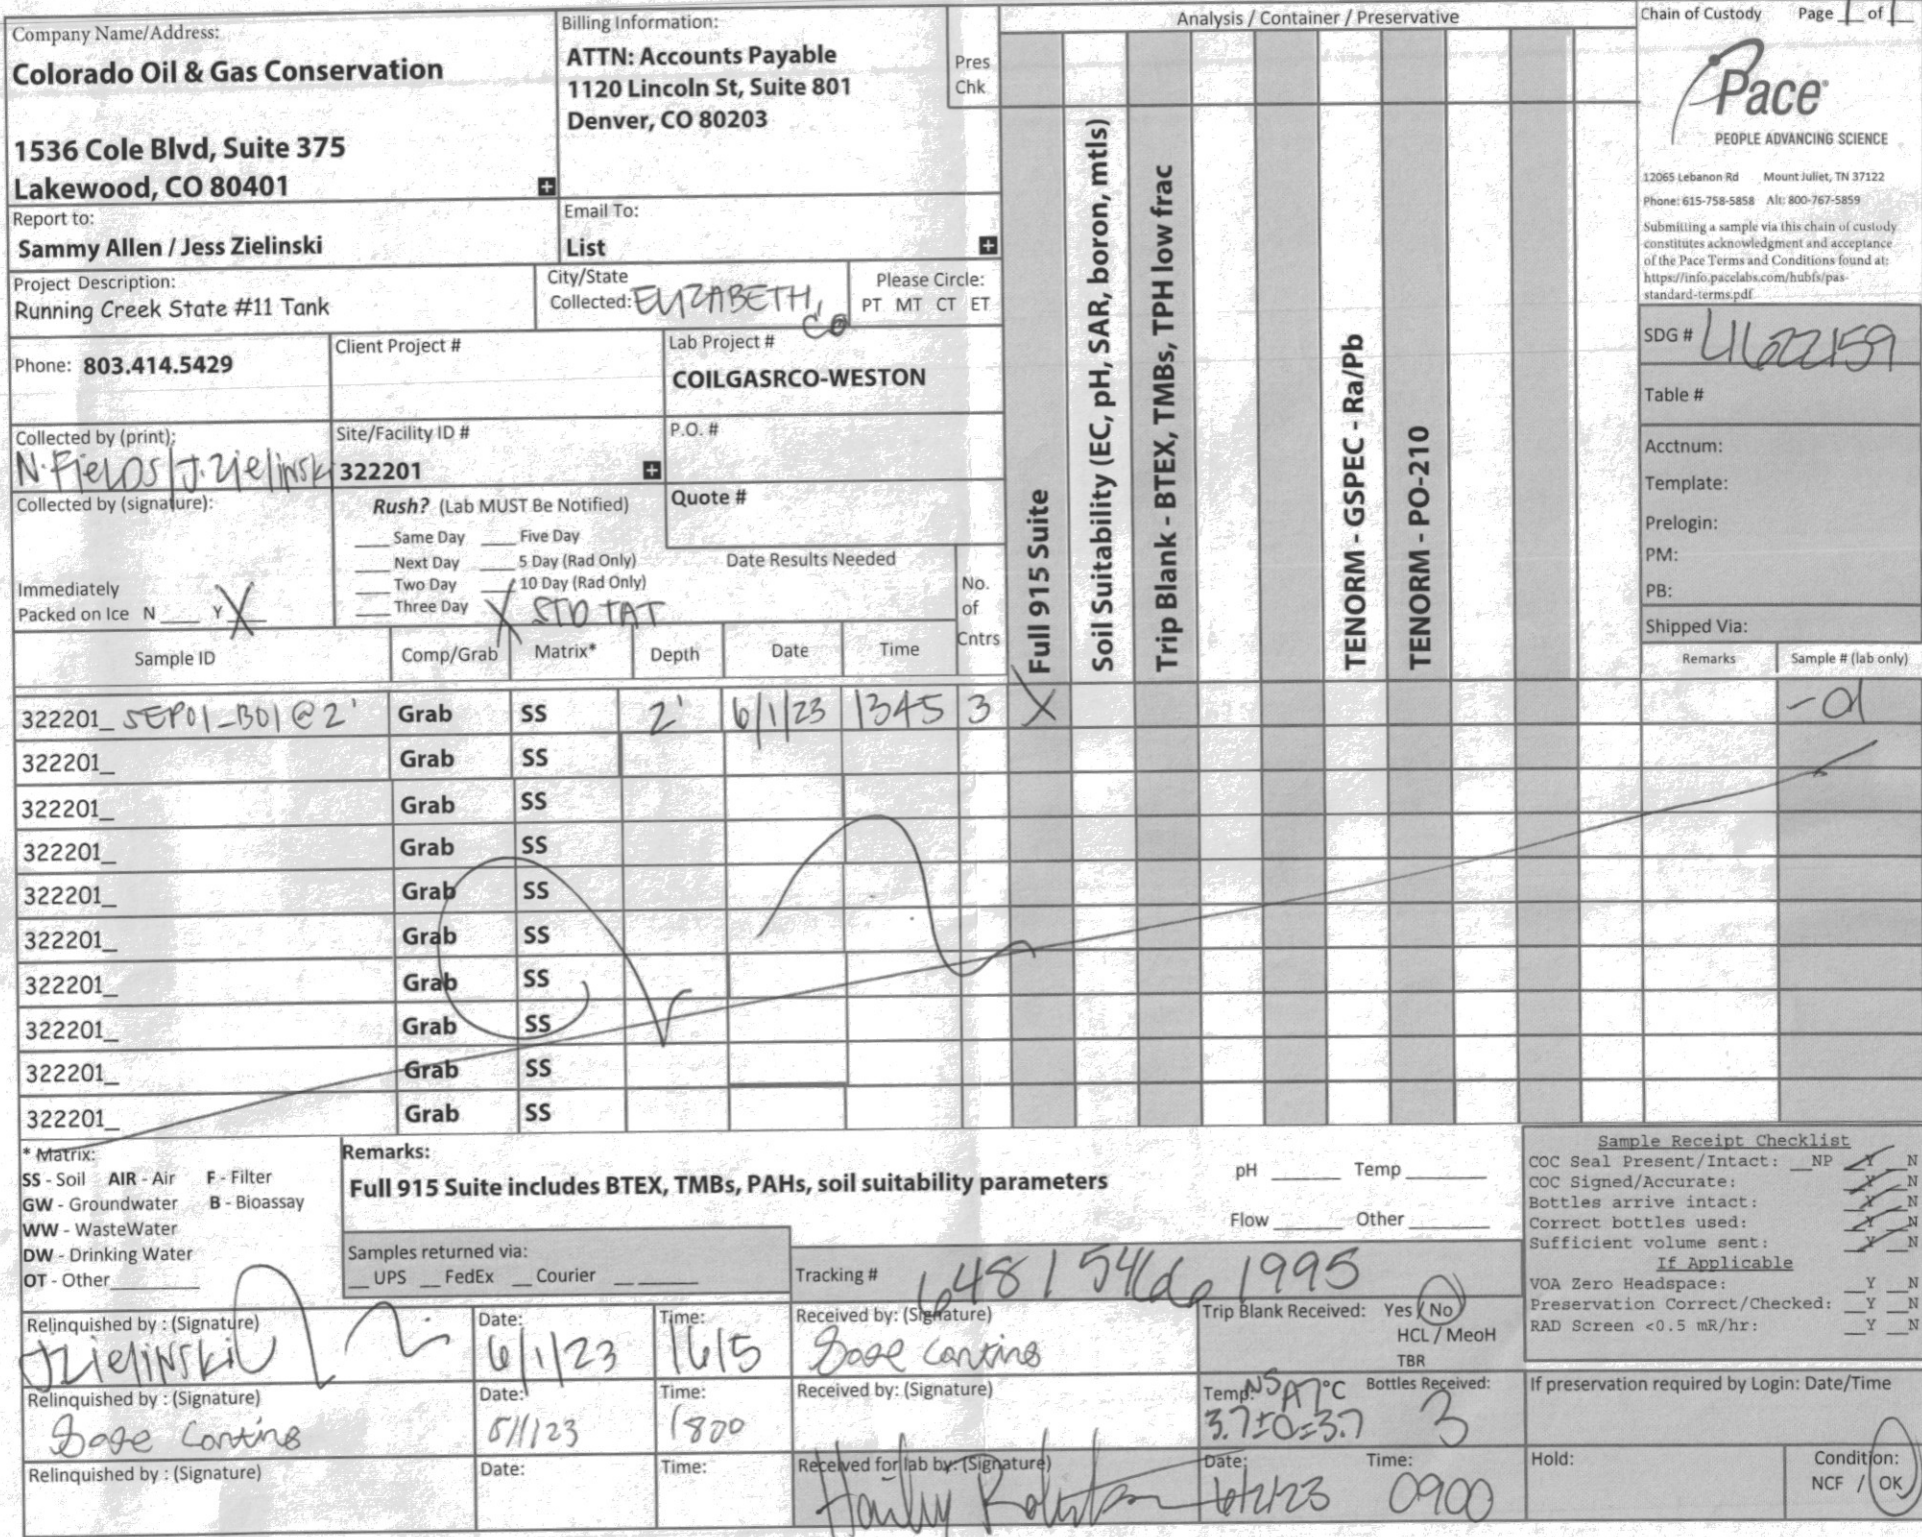 Company Name/Address:
Colorado Oil & Gas Conservation
1536 Cole Blvd, Suite 375
Lakewood, CO 80401
Billing Information:
ATTN: Accounts Payable
1120 Lincoln St, Suite 801
Denver, CO 80203
Pres
Chk
Analysis / Container / Preservative
Chain of Custody Page 1 of 1
Pace
PEOPLE ADVANCING SCIENCE
12065 Lebanon Rd Mount Juliet, TN 37122
Phone: 615-758-5858 Alt: 800-767-5859
Submitting a sample via this chain of custody
constitutes acknowledgment and acceptance
of the Pace Terms and Conditions found at:
https://info.pacelabs.com/hubfs/pas-
standard-terms.pdf
Report to:
Sammy Allen / Jess Zielinski
Email To:
List
Project Description:
Running Creek State #11 Tank
City/State
Collected: ELIZABETH, CO
Please Circle:
PT MT CT ET
Phone: 803.414.5429
Client Project #
Lab Project #
COILGASRCO-WESTON
Collected by (print):
N. FIELDS / J. Zielinski
Site/Facility ID #
322201
P.O. #
Collected by (signature):
Rush? (Lab MUST Be Notified)
___ Same Day ___ Five Day
___ Next Day ___ 5 Day (Rad Only)
___ Two Day ___ 10 Day (Rad Only)
___ Three Day X STD TAT
Quote #
Date Results Needed
Immediately
Packed on Ice N ___ Y X
No.
of
Cntrs
Full 915 Suite
Soil Suitability (EC, pH, SAR, boron, mtls)
Trip Blank - BTEX, TMBs, TPH low frac
TENORM - GSPEC - Ra/Pb
TENORM - PO-210
SDG # L1622159
Table #
Acctnum:
Template:
Prelogin:
PM:
PB:
Shipped Via:
Sample ID Comp/Grab Matrix* Depth Date Time Remarks Sample # (lab only)
322201_ SEP01_B01@2' Grab SS 2' 6/1/23 1345 3 X -01
322201_ Grab SS
322201_ Grab SS
322201_ Grab SS
322201_ Grab SS
322201_ Grab SS
322201_ Grab SS
322201_ Grab SS
322201_ Grab SS
322201_ Grab SS
* Matrix:
SS - Soil AIR - Air F - Filter
GW - Groundwater B - Bioassay
WW - WasteWater
DW - Drinking Water
OT - Other
Remarks:
Full 915 Suite includes BTEX, TMBs, PAHs, soil suitability parameters
pH ______ Temp ______
Flow ______ Other ______
Samples returned via:
__ UPS __ FedEx __ Courier __ ______
Tracking # 6481 5466 1995
Sample Receipt Checklist
COC Seal Present/Intact: __NP __Y __N
COC Signed/Accurate: __Y __N
Bottles arrive intact: __Y __N
Correct bottles used: __Y __N
Sufficient volume sent: __Y __N
If Applicable
VOA Zero Headspace: __Y __N
Preservation Correct/Checked: __Y __N
RAD Screen <0.5 mR/hr: __Y __N
Relinquished by : (Signature)
JZielinski
Date:
6/1/23
Time:
1615
Received by: (Signature)
Trip Blank Received: Yes / No
HCL / MeoH
TBR
Relinquished by : (Signature)
Date:
Time:
1800
Received by: (Signature)
Temp: °C
3.7±0=3.7
Bottles Received:
3
If preservation required by Login: Date/Time
Relinquished by : (Signature)
Date:
Time:
Received for lab by: (Signature)
Date:
6/2/23
Time:
0900
Hold:
Condition:
NCF / OK